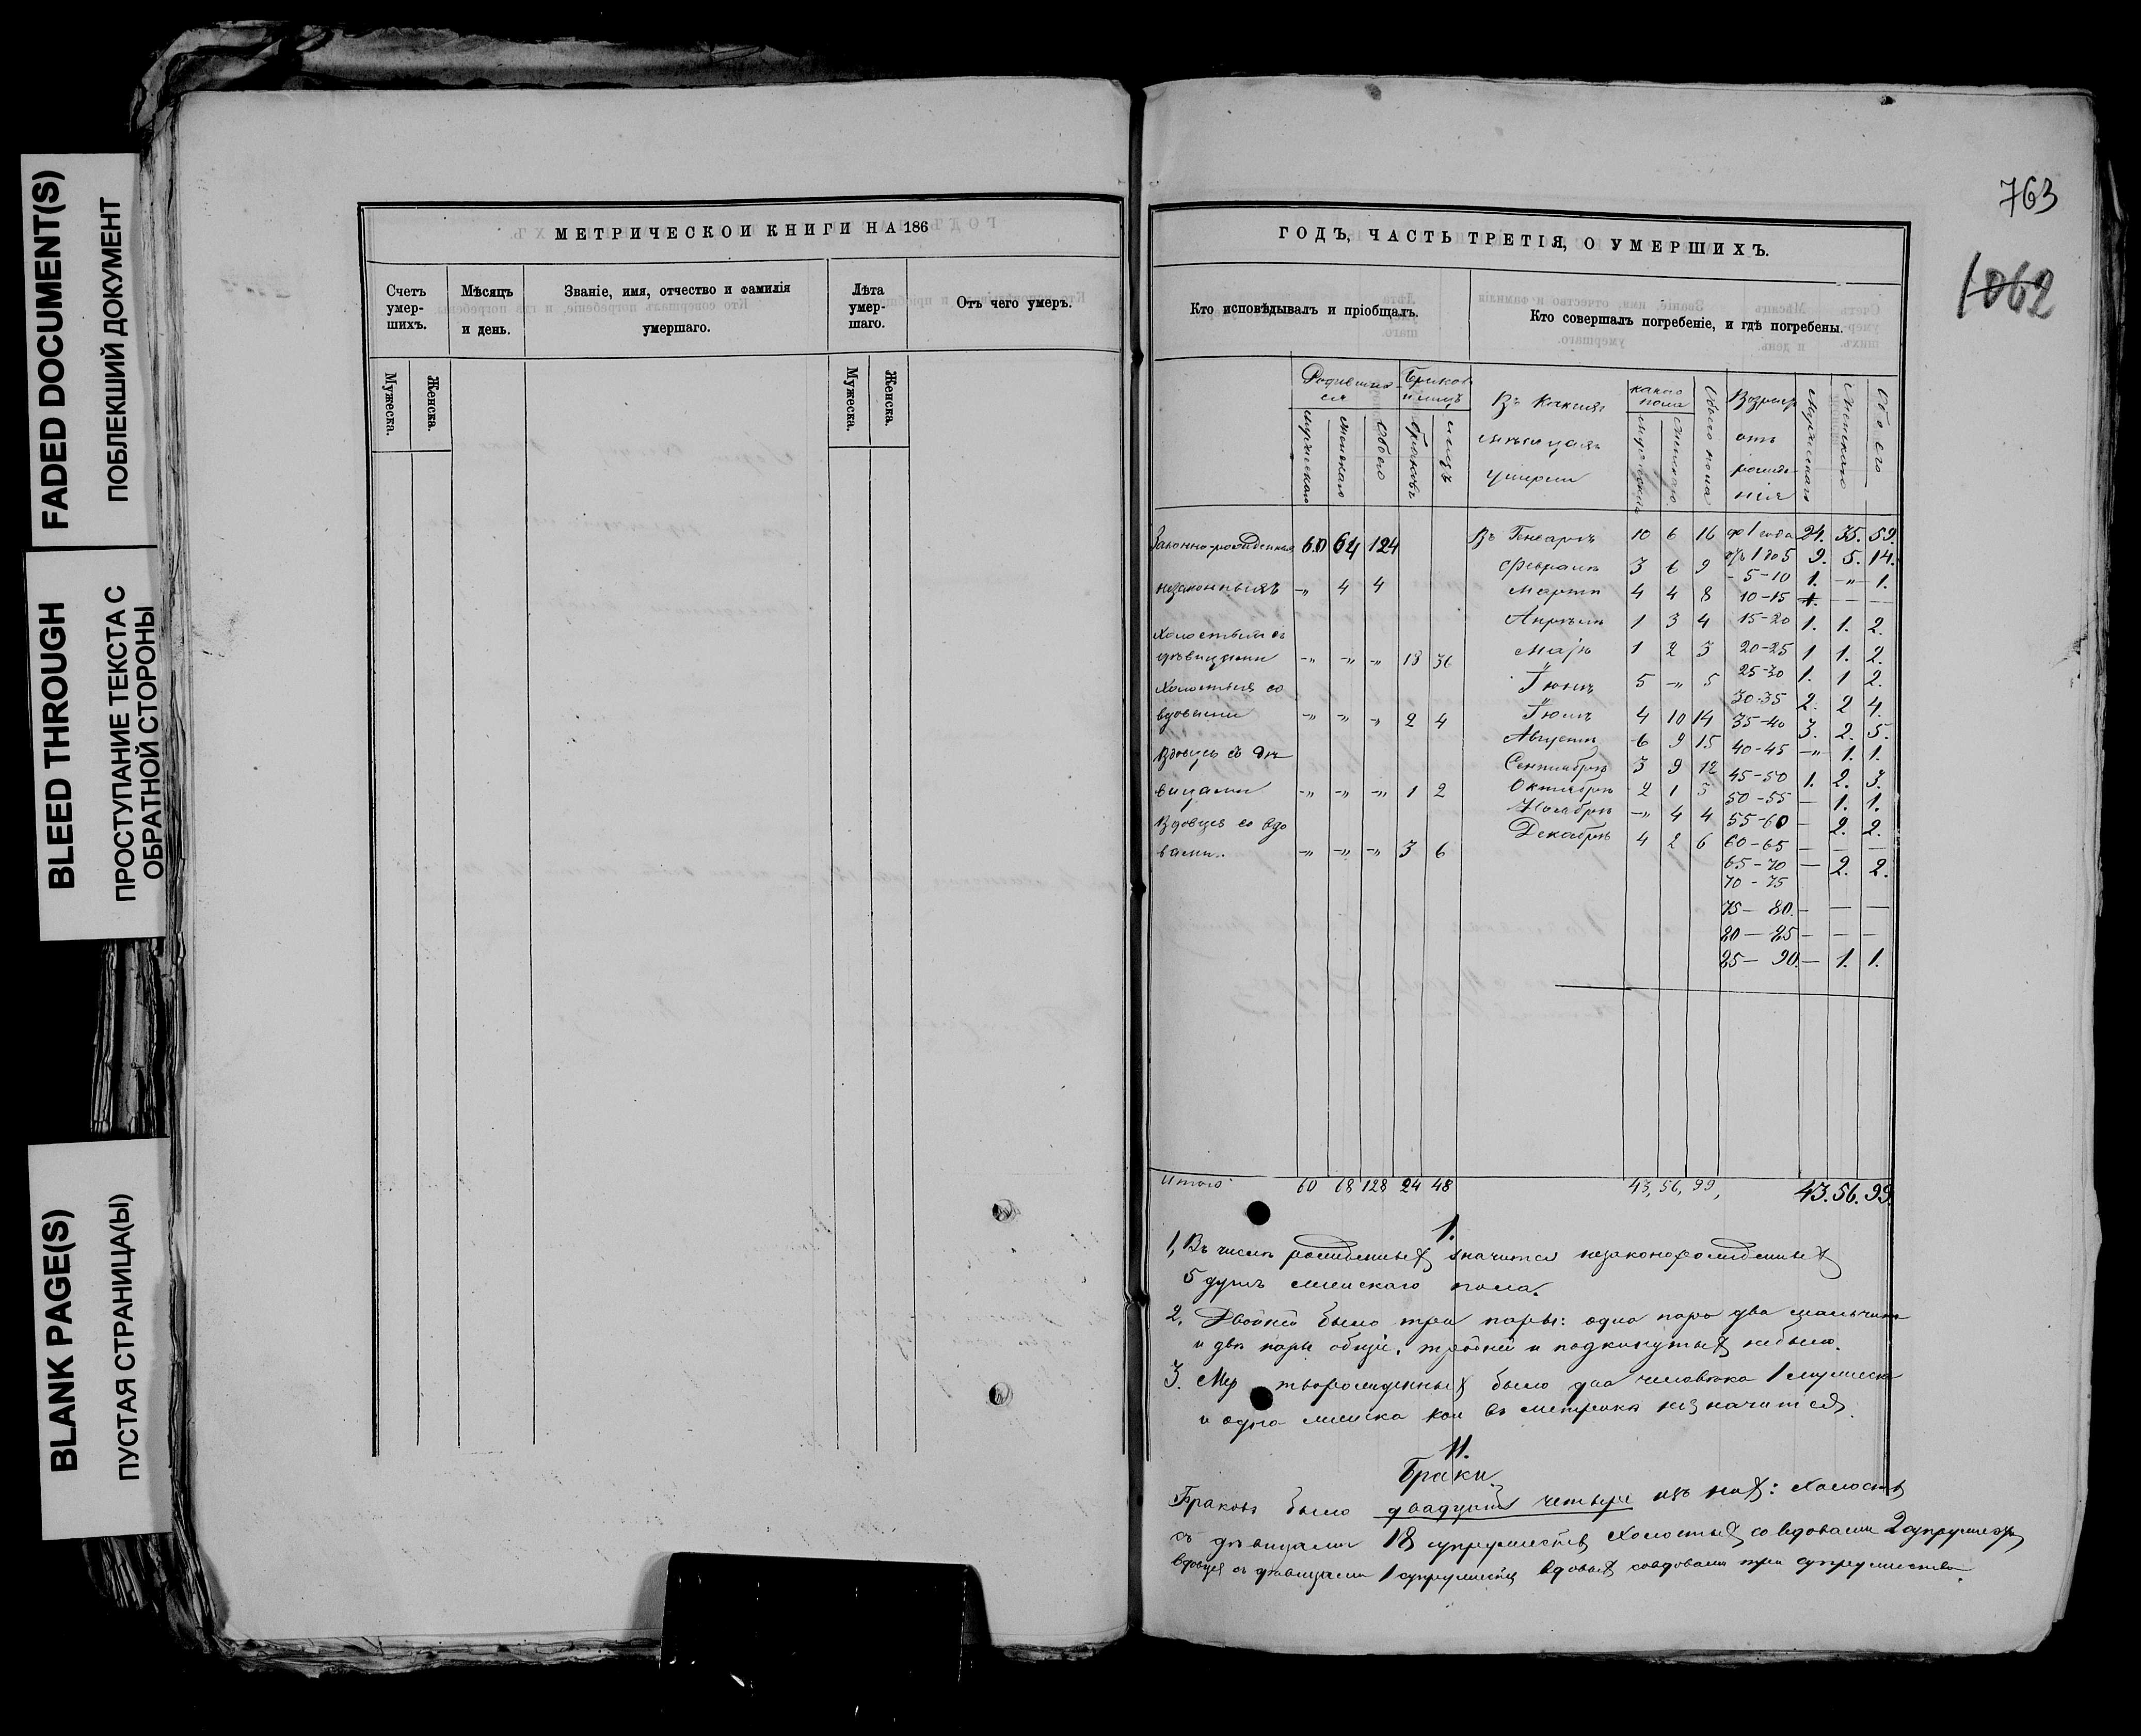 FADED DOCUMENT(S)
ПОБЛЕКШИЙ ДОКУМЕНТ
BLEED THROUGH
ПРОСТУПАНИЕ ТЕКСТА С
ОБРАТНОЙ СТОРОНЫ
BLANK PAGE(S)
ПУСТАЯ СТРАНИЦА(Ы)
МЕТРИЧЕСКОЙ КНИГИ НА 186
Счетъ умер-шихъ.
Мѣсяцъ и день.
Званіе, имя, отчество и фамилія
умершаго.
Лѣта умер-шаго.
Отъ чего умеръ.
Мужеска. Женска. Мужеска. Женска.
763
1062
ГОДЪ, ЧАСТЬ ТРЕТІЯ, О УМЕРШИХЪ.
Кто исповѣдывалъ и пріобщалъ.
Кто совершалъ погребеніе, и гдѣ погребены.
Родивших-ся
мужескаго женскаго обоего
браковъ лицъ
Въ какихъ
мѣсяцахъ
умерли
какого пола
мужескаго женскаго
обоего пола
Возрастъ
отъ
рожде-
нія
мужескаго женскаго обоего
Законно-рожденныхъ 60 64 124
незаконныхъ -„ 4 4
Холостыхъ съ
дѣвицами -„ -„ -„ 18 36
Холостыхъ со
вдовами -„ -„ -„ 2 4
Вдовцевъ съ дѣ
вицами -„ -„ -„ 1 2
Вдовцевъ со вдо
вами. -„ -„ -„ 3 6
Въ Генварѣ 10 6 16
Февралѣ 3 6 9
Мартѣ 4 4 8
Апрѣлѣ 1 3 4
Маіѣ 1 2 3
Іюнѣ 5 -„ 5
Іюлѣ 4 10 14
Августѣ 6 9 15
Сентябрѣ 3 9 12
Октябрѣ 2 1 3
Ноябрѣ -„ 4 4
Декабрѣ 4 2 6
до 1 года 24. 35. 59.
отъ 1 до 5 9. 5. 14.
- 5-10 1. -„- 1.
10-15 1. — —
15-20 1. 1. 2.
20-25 1 1. 2.
25-30 1. 1 2.
30-35 2. 2 4.
35-40 3. 2. 5.
40-45 -„ 1. 1.
45-50 1. 2. 3.
50-55 — 1. 1.
55-60 — 2. 2.
60-65 — — —
65-70 — 2. 2.
70-75
75— 80. — — —
80— 85 — — —
85— 90. — 1. 1.
Итого 60 68 128 24 48 43, 56, 99, 43. 56. 99.
1.
1, Въ числѣ рожденныхъ значится незаконорожденныхъ
5 душъ женскаго пола.
2. Двойней было три пары: одна пара два мальчика
и двѣ пары общіе, тройней и подкинутыхъ небыло.
3. Мер творожденныхъ было два человѣка 1 мужеска
и одна женска кои въ метрикѣ не значится.
11.
Браки
Браковъ было двадцать четыре изъ нихъ: Холостыхъ
съ дѣвицами 18 супружествъ Холостыхъ со вдовами 2 супружествъ
вдовцевъ съ дѣвицами 1 супружество вдовыхъ совдовами три супружества.